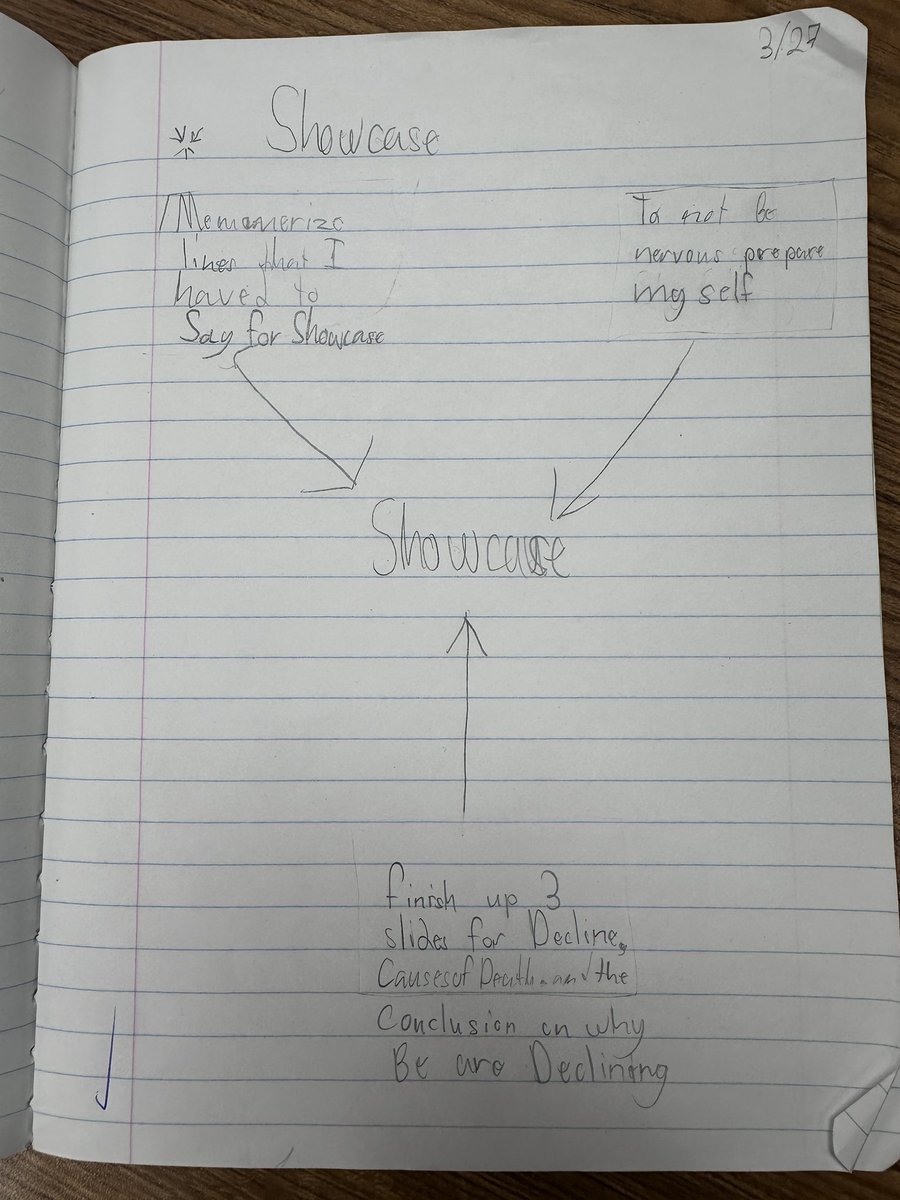 3/27
Showcase
Memamerize
lines that I
haved to
Say for Showcase
To not Be
nervous prepare
my self
Showcase
finish up 3
slides for Decline,
Causes of Death. and the
Conclusion on why
Be are Declining